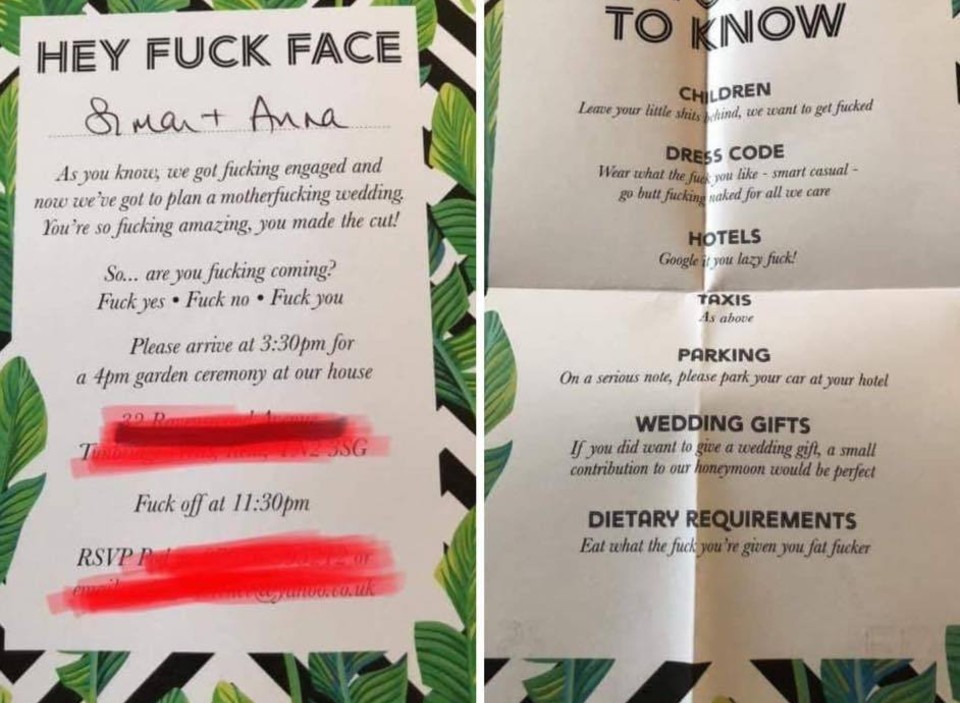 HEY FUCK FACE
Anna
As you know, we got fucking engaged and
now we've got to plan a motherfucking wedding.
You're so fucking amazing, you made the cut!
So... are you fucking coming?
Fuck yes • Fuck no • Fuck you
Please arrive at 3:30pm for
a 4pm garden ceremony at our house
Fuck off at 11:30pm
RSVP
TO KNOW
CHILDREN
Leave your little shits behind, we want to get fucked
DRESS CODE
Wear what the fuck you like - smart casual -
go butt fucking naked for all we care
HOTELS
Google it you lazy fuck!
TAXIS
As above
PARKING
On a serious note, please park your car at your hotel
WEDDING GIFTS
If you did want to give a wedding gift, a small
contribution to our honeymoon would be perfect
DIETARY REQUIREMENTS
Eat what the fuck you're given you fat fucker